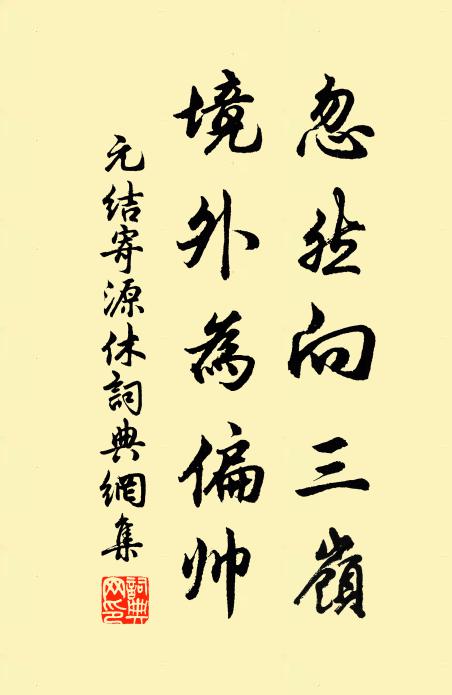 忽然向三嶺
境外為偏帅
元结寄源休詞典網集
詞典网印